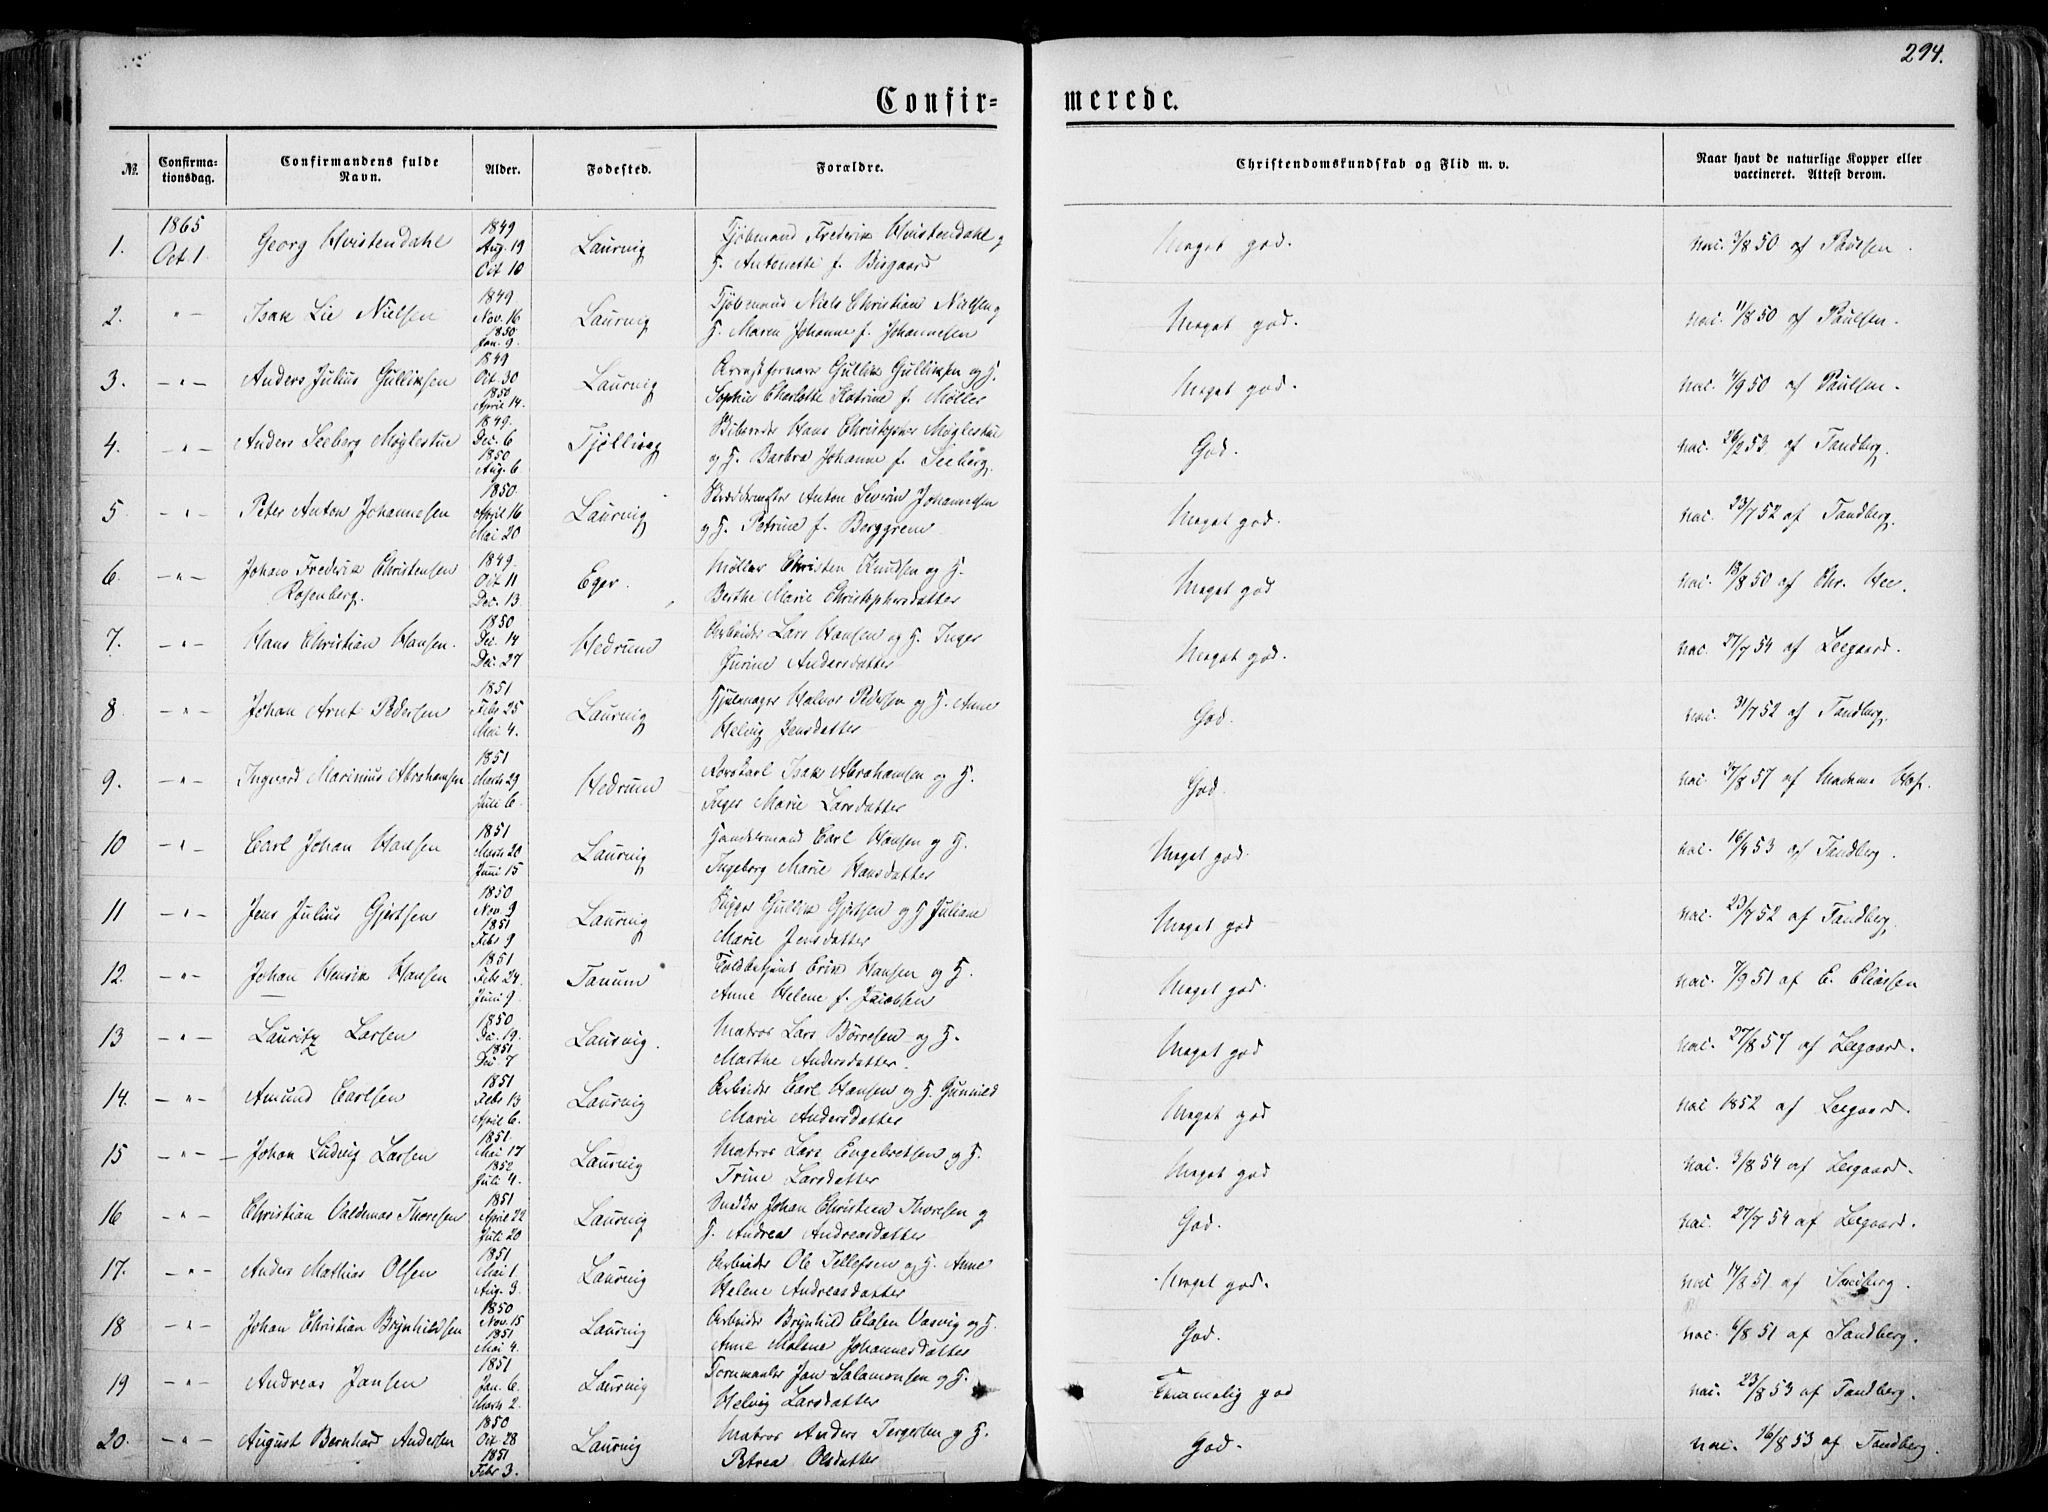 294.
Confir= merede.
№. Confirma-tionsdag. Confirmandens fulde Navn. Alder. Fødested. Forældre. Christendomskundskab og Flid m. v. Naar havt de naturlige Kopper eller vaccineret. Attest derom.
1865 1849
1. Oct 1. Georg Hvistendahl Aug. 19 Laurvig Kjøbmand Frederik Hvistendahl og Meget god. vac. 3/8 50 af Paulsen.
Oct 10 H. Antonette f. Bisgaard
1849
2. -"- Isak Lie Nielsen Nov. 16 Laurvig Kjøbmand Niels Christian Nielsen og Meget god. vac. 11/8 50 af Paulsen.
1850 Jan. 9. H. Maren Johanne f. Johannesen
1849
3. -"- Anders Julius Gulliksen Oct. 30 Laurvig Arrestforvarer Gullik Gulliksen og H. Meget god. vac. 4/9 50 af Paulsen.
1850 April 14. Sophie Charlotte Katrine f. Møller
1849.
4. -"- Anders Seeberg Møglestue Dec. 6 Tjølling Hans Christopher Møglestue God. vac. 26/2 53 af Tandberg.
1850 Aug. 6. og H. Barbra Johanne f. Seeberg.
1850.
5. -"- Peter Anton Johannesen April 16 Laurvig Anton Severin Johannesen Meget god. vac. 23/7 52 af Tandberg.
Mai 20 og H. Petrine f. Berggren
1849.
6. -"- Johan Frederik Christensen Oct. 11 Eger. Møller Christen Knudsen og H. Meget god vac. 18/8 50 af Chr. Hee.
Rosenberg. Dec. 13. Berthe Marie Christophersdatter
1850
7. -"- Hans Christian Hansen. Dec. 14 Hedrum Arbeider Lars Hansen og H. Inger Meget god. vac. 27/7 54 af Leegaard.
Dec. 27 Jurine Andersdatter
1851
8. -"- Johan Arnt Pedersen Febr 25 Laurvig Hjulmager Halvor Pedersen og H. Anne God. vac. 31/7 52 af Tandberg.
Mai 4. Helvig Jensdatter
1851
9. -"- Ingvard Marinius Abrahamsen Marts 29 Hedrum Isak Abrahamsen og H. God. vac. 27/8 57 af Madame
Juli 6. Inger Marie Larsdatter
1851
10 -"- Carl Johan Hansen Marts 20 Laurvig Handelsmand Carl Hansen og H. Meget god. vac. 16/9 53 af Tandberg.
Juni 15 Ingeborg Marie Hansdatter
1850
11 -"- Jens Julius Gjertsen Nov. 9 Laurvig Rygger Gullik Gjertsen og H Juliane Meget god vac. 23/7 52 af Tandberg.
1851 Febr 9 Marie Jensdatter
1851
12. -"- Johan Henrik Hansen Febr 24. Tanum Toldbetjent Erik Hansen og H. Meget god. vac. 7/9 51 af E. Eliassen
Juni 9. Anne Helene f. Jacobsen
1850
13 -"- Lauritz Larsen Dec. 19. Laurvig. Matros Lars Børresen og H. Meget god vac. 27/8 57 af Leegaard.
1851 Dec. 7 Marthe Andersdatter.
1851
14. -"- Amund Carlsen Febr 13 Laurvig Arbeider Carl Hansen og H. Gunnild Meget god vac 1852 af Leegaard.
April 6. Marie Andersdatter
1851.
15 -"- Johan Ludvig Larsen Mai 17 Laurvig Matros Lars Engebretsen og H. Meget god vac. 3/8 54 af Leegaard.
1852 Juli 4. Trine Larsdatter
1851
16 -"- Christian Valdemar Thoresen April 22 Laurvig Snedker Johan Christian Thoresen og God. vac. 27/7 54 af Leegaard.
Juli 20 H. Andrea Andreasdatter
1851
17. -"- Anders Mathias Olsen Mai 1. Laurvig Arbeider Ole Tellefsen og H. Anne Meget god. vac 14/8 51 af Sandberg.
Aug. 3. Helene Andreasdatter
1850
18 -"- Johan Christian Brynhildsen Nov. 15 Laurvig Arbeider Brynhild Clasen Vasvig og H. God. vac. 6/8 51 af Sandberg.
1851 Mai 4. Anne Malene Johannesdatter
1851
19 -"- Andreas Jansen Jan. 6. Laurvig Jan Salamonsen og H. Temmelig god vac. 23/8 53 af Tandberg.
Marts 2. Helvig Larsdatter
1850
20. -"- August Bernhard Andersen Oct. 28 Laurvig Matros Anders Tergersen og H. God. vac. 16/8 53 af Tandberg.
1851 Febr 3. Petrea Olsdatter